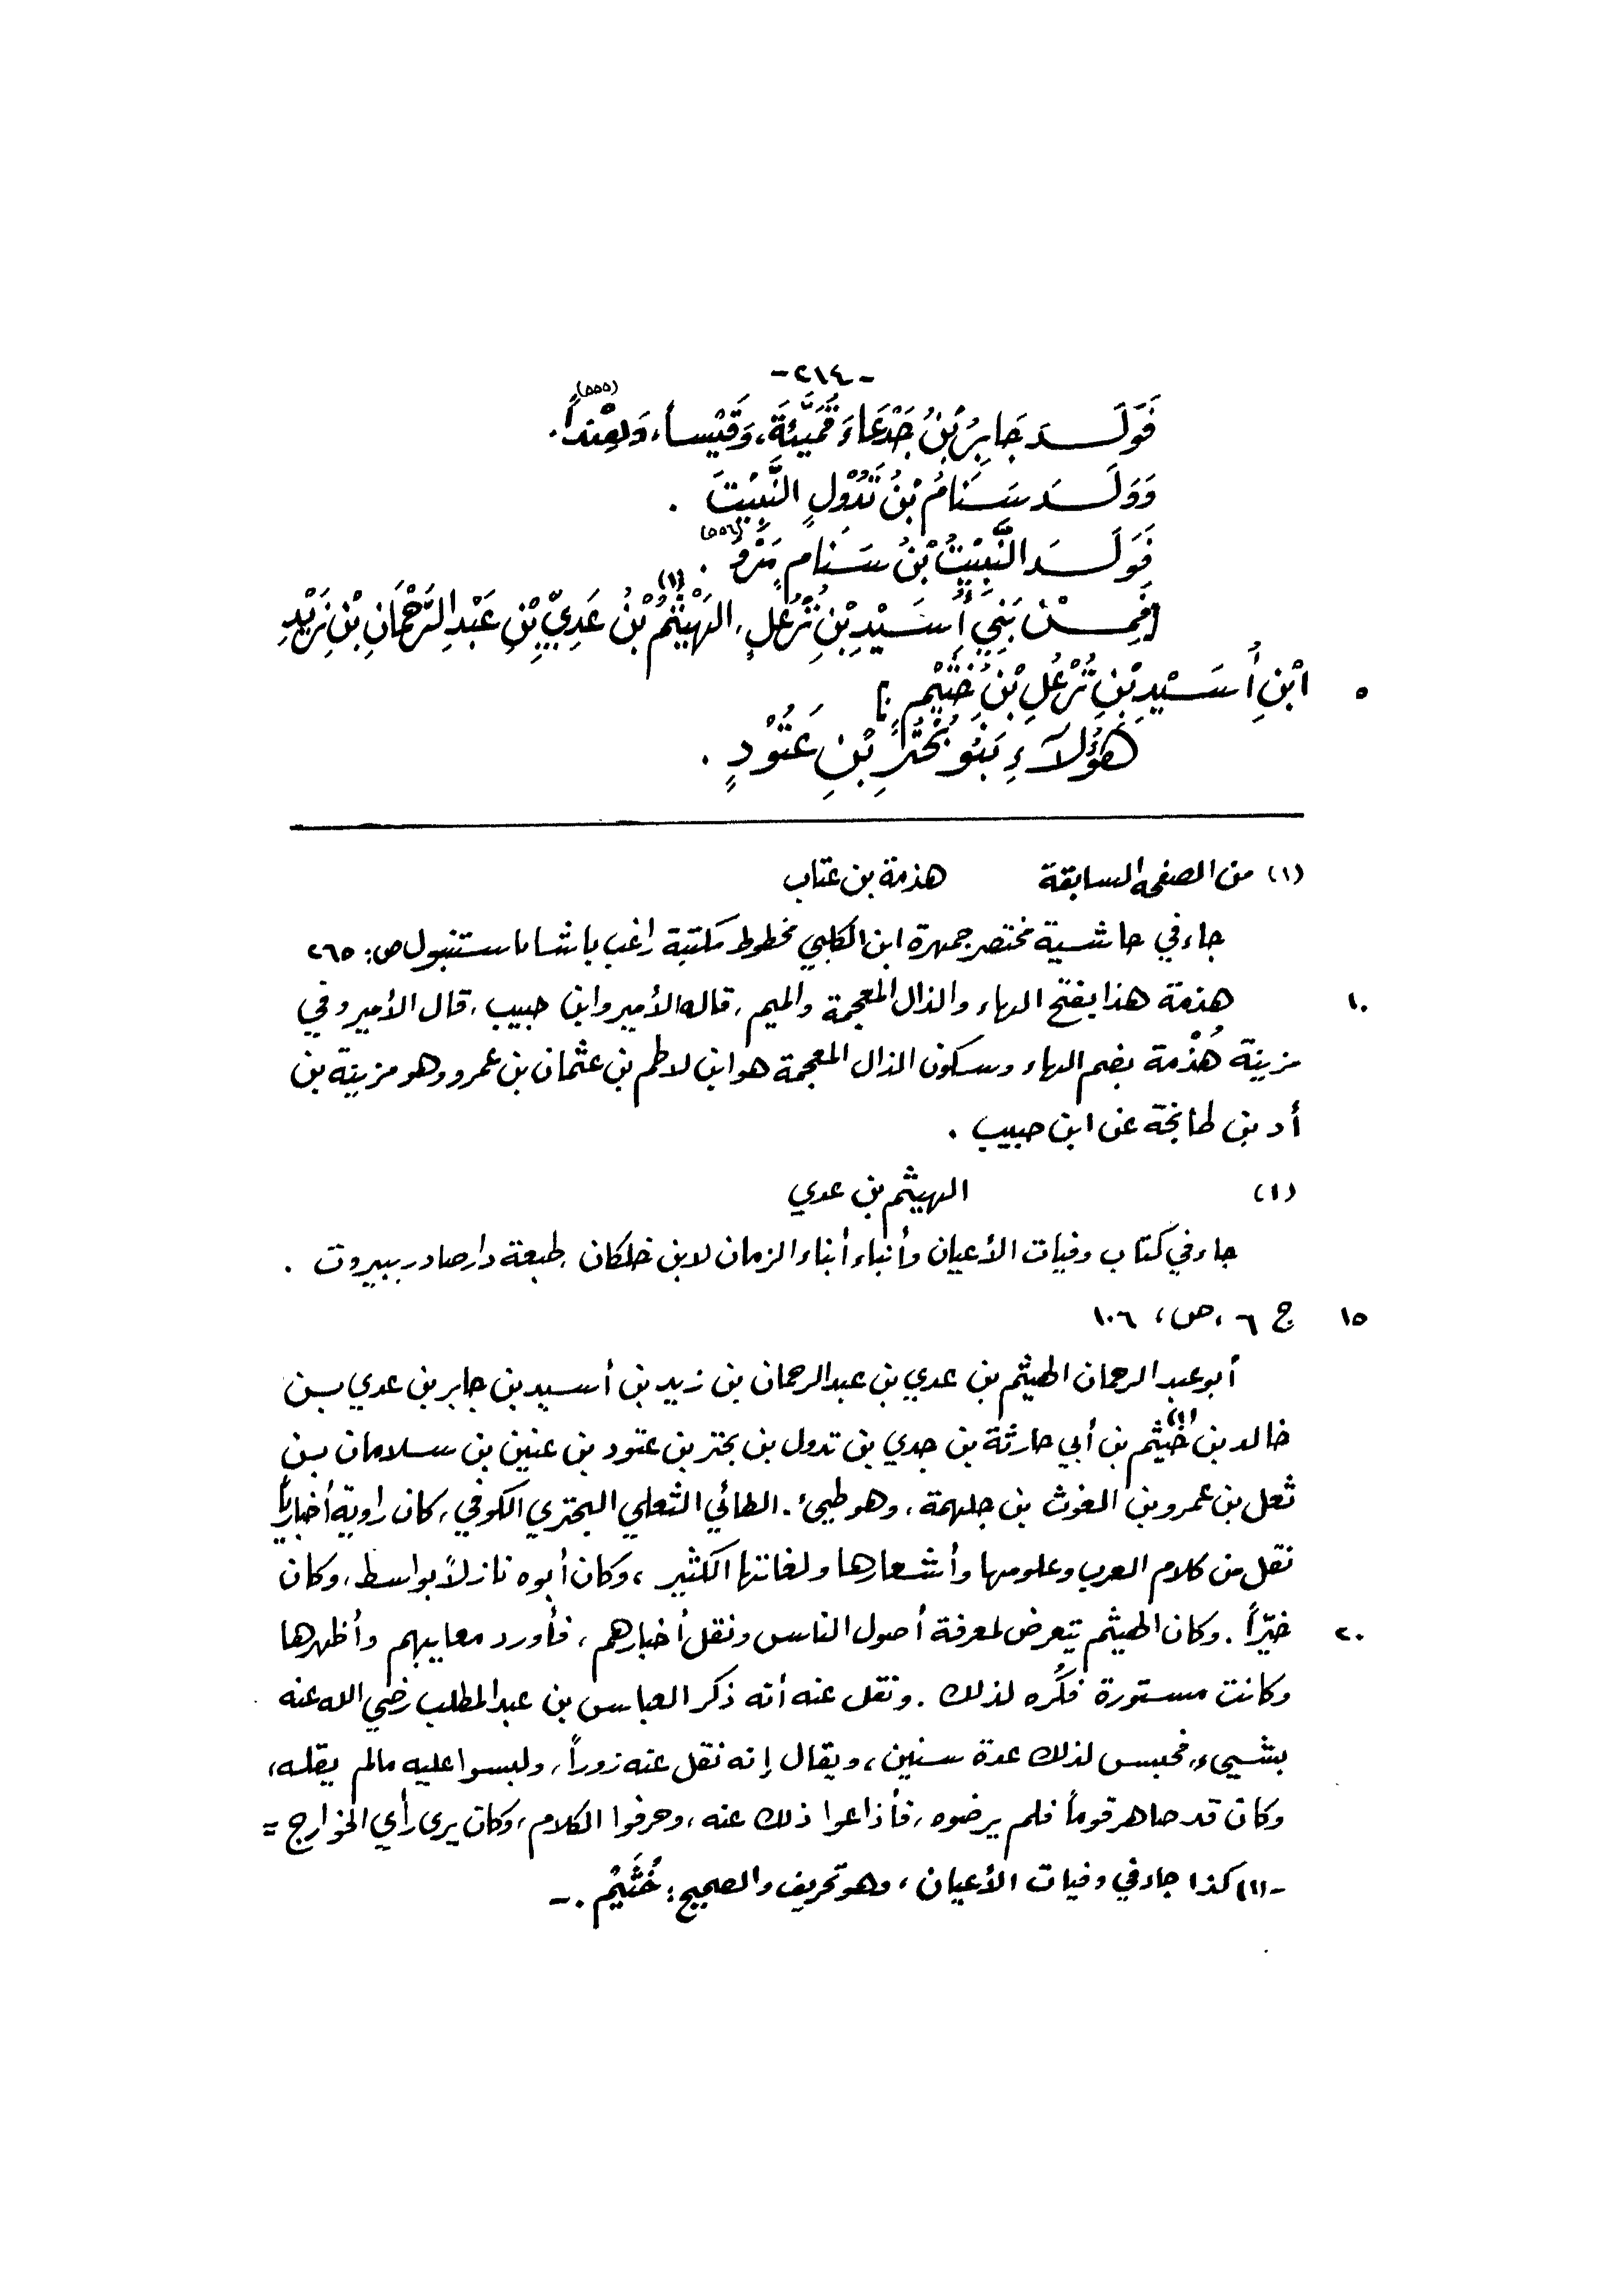 -٢١٤-
فَوَلَدَ جَابِرُ بْنُ جَدْعَاءَ قُمَيَّئَةَ، وَقَيْساً، وَهِنْداً.(٥٥٥)
وَوَلَدَ سَنَامُ بْنُ تَدُوْلٍ النَّبِيْتَ .
فَوَلَدَ النَّبِيْتُ بْنُ سَنَامٍ مَرْوَ(٥٥٦) .
[فَمِنْ بَنِي أُسَيْدِ بْنِ تُرْعُلٍ، الهَيْثَمُ(١) بْنُ عَدِيِّ بْنِ عَبْدِ الرَّحْمَانِ بْنِ زَيْدِ
٥ ابْنِ أُسَيْدِ بْنِ تُرْعُلِ بْنِ خُثَيْمٍ .]
هَؤُلآءِ بَنُو بُحْتُرِ بْنِ عَتُوْدٍ .
(١) من الصفحة السابقة هذمة بن عتاب
جاء في حاشية مختصر جمهرة ابن الكلبي مخطوط مكتبة راغب باشا باستنبول ص: ٢٦٥
١٠ هذمة هذا بفتح الهاء والذال المعجمة والميم، قاله الأمير وابن حبيب، قال الأمير وفي
مزينة هُذْمة بضم الهاء وسكون الذال المعجمة هو ابن لاطم بن عثمان بن عمرو وهو مزينة بن
أد بن طابخة عن ابن حبيب .
(١) الهيثم بن عدي
جاء في كتاب وفيات الأعيان وأنباء أبناء الزمان لابن خلكان، طبعة دار صادر ببيروت .
١٥ ج ٦ ، ص، ١٠٦
أبو عبد الرحمان الهيثم بن عدي بن عبد الرحمان بن زيد بن أسيد بن جابر بن عدي بن
خالد بن خيثم(١) بن أبي حارثة بن جدي بن تدول بن بحتر بن عتود بن عنين بن سلامان بن
ثعل بن عمرو بن الغوث بن جلهمة، وهو طيئ. الطائي الثعلي البحتري الكوفي، كان راوية أخبارياً
نقل من كلام العرب وعلومها وأشعارها ولغاتها الكثير، وكان أبوه نازلاً بواسط، وكان
٢٠ خيّراً . وكان الهيثم يتعرض لمعرفة أصول الناس ونقل أخبارهم، فأورد معايبهم وأظهرها
وكانت مستورة فكُره لذلك . ونقل عنه أنه ذكر العباس بن عبد المطلب رضي الله عنه
بشيىء، فحبس لذلك عدة سنين، ويقال إنه نقل عنه زوراً، ولبسوا عليه مالم يقله،
وكان قد صاهر قوماً فلم يرضوه، فأذاعوا ذلك عنه، وحرفوا الكلام، وكان يرى رأي الخوارج =
-(١) كذا جاء في وفيات الأعيان، وهو تحريف والصحيح: خُثَيْم .-